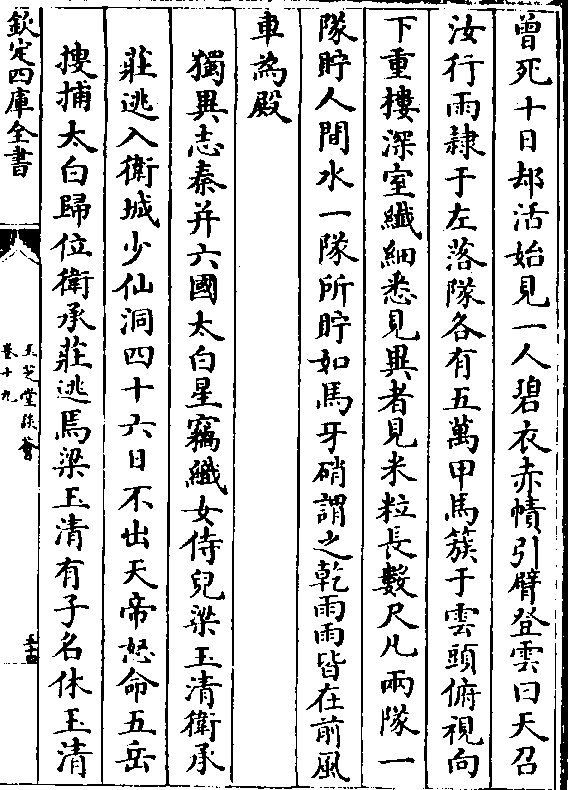 曾死十日却活始見一人碧衣赤幘引臂登雲曰天召
汝行雨隸于左落隊各有五萬甲馬簇于雲頭俯視向
下重樓深室纖細悉見異者見米粒長數尺凡兩隊一
隊貯人間水一隊所貯如馬牙硝謂之乾雨雨皆在前風
車為殿
獨異志秦并六國太白星竊織女侍兒梁玉清衛承
莊逃入衛城少仙洞四十六日不出天帝怒命五岳
搜捕太白歸位衛承莊逃焉梁玉清有子名休玉清
欽定四庫全書
玉芝堂談薈
卷十九
五十四